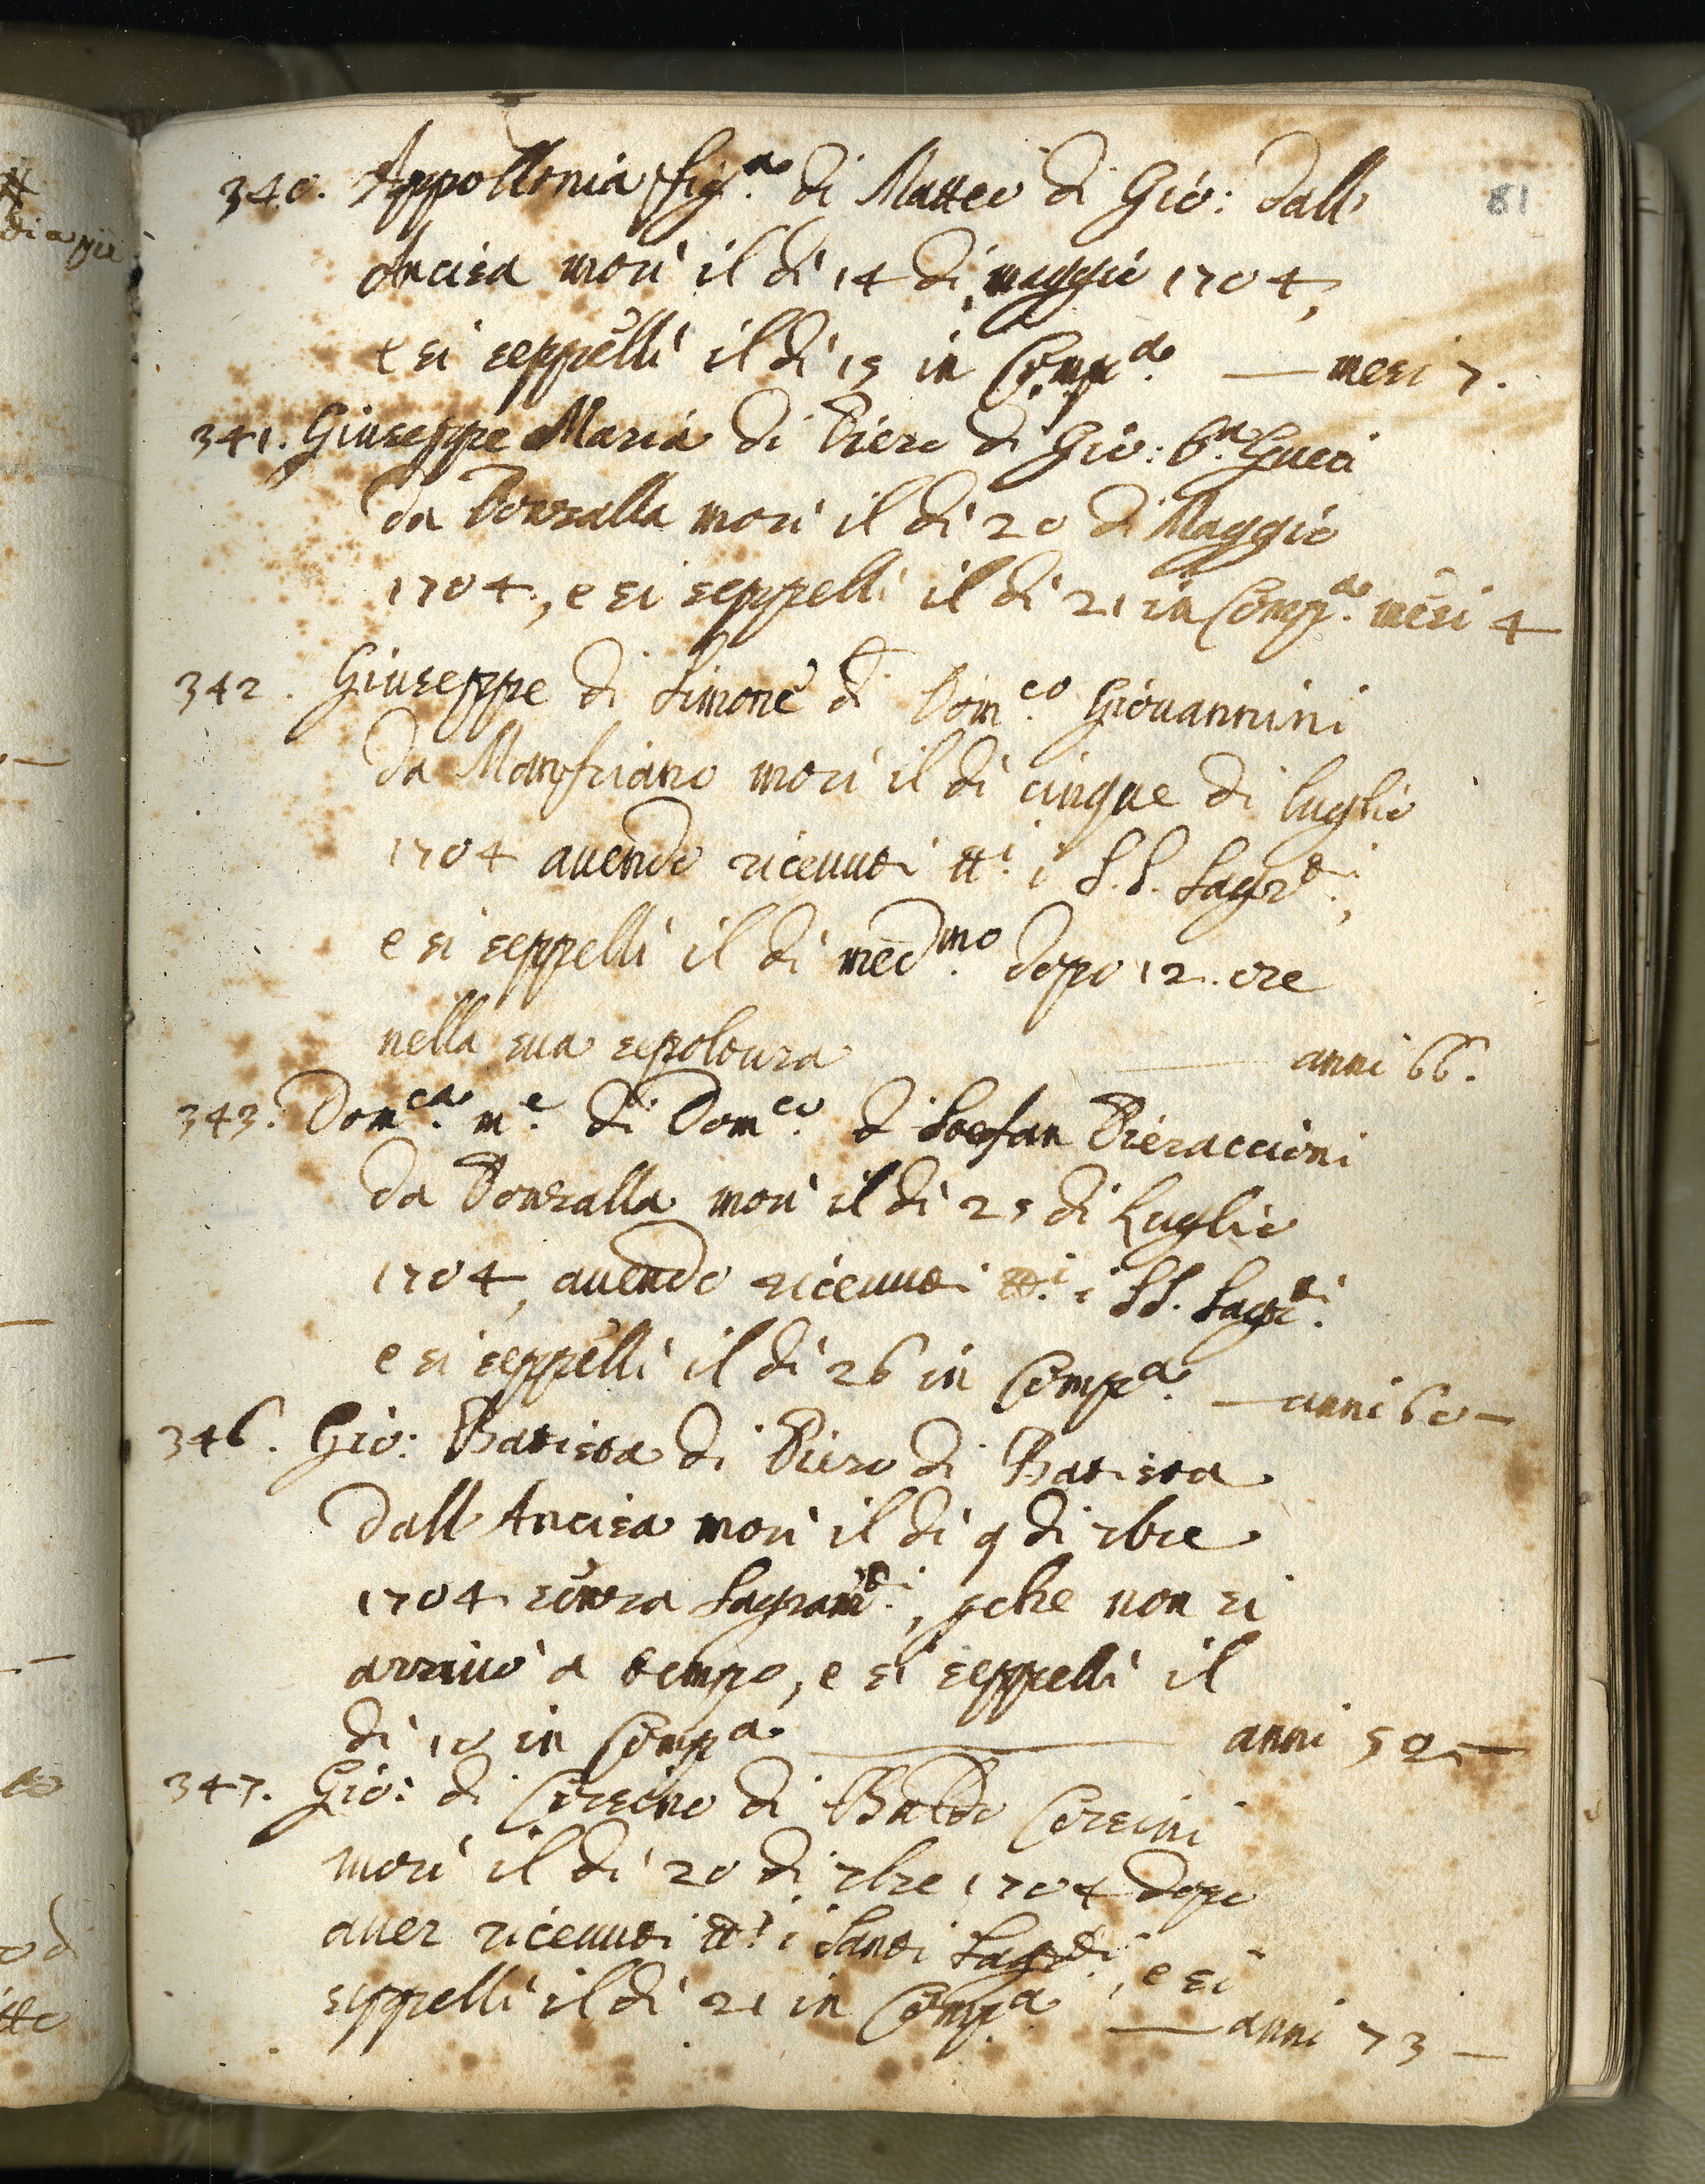 81
340. Appollonia fig.a di Matteo di Gio: dall'
Ancisa morì il dì 14 di maggio 1704,
e si seppellì il dì 15 in Comp.a — mesi 7.
341. Giuseppe Maria di Piero di Gio: B.a Gucci
da Donzalla morì il dì 20 di Maggio
1704, e si seppellì il dì 21 in Comp.a mesi 4
342. Giuseppe di Simone di Dom.co Giovannini
da Monfriano morì il dì cinque di luglio
1704 avendo ricevuti tt.i i S.S. Sagr.ti,
e si seppellì il dì med.mo dopo 12. ore
nella sua sepoltura — anni 66.
343. Dom.ca m.e di Dom.co di Stefan Pieraccioni
da Donzalla morì il dì 25 di Luglio
1704, avendo ricevuti tt.i i SS. Sagr.ti
e si seppellì il dì 26 in Comp.a — anni 60 —
346. Gio: Batista di Piero di Batista
dall'Ancisa morì il dì 9 di 7bre
1704 senza Sagram.ti, pche non si
arrivò a tempo, e si seppellì il
dì 10 in Comp.a — anni 50 —
347. Gio: di Corsino di Baldo Corsini
morì il dì 20 di 7bre 1704 dopo
aver ricevuti tt.i i Santi Sagr.ti, e si
seppellì il dì 21 in Comp.a — anni 73 —